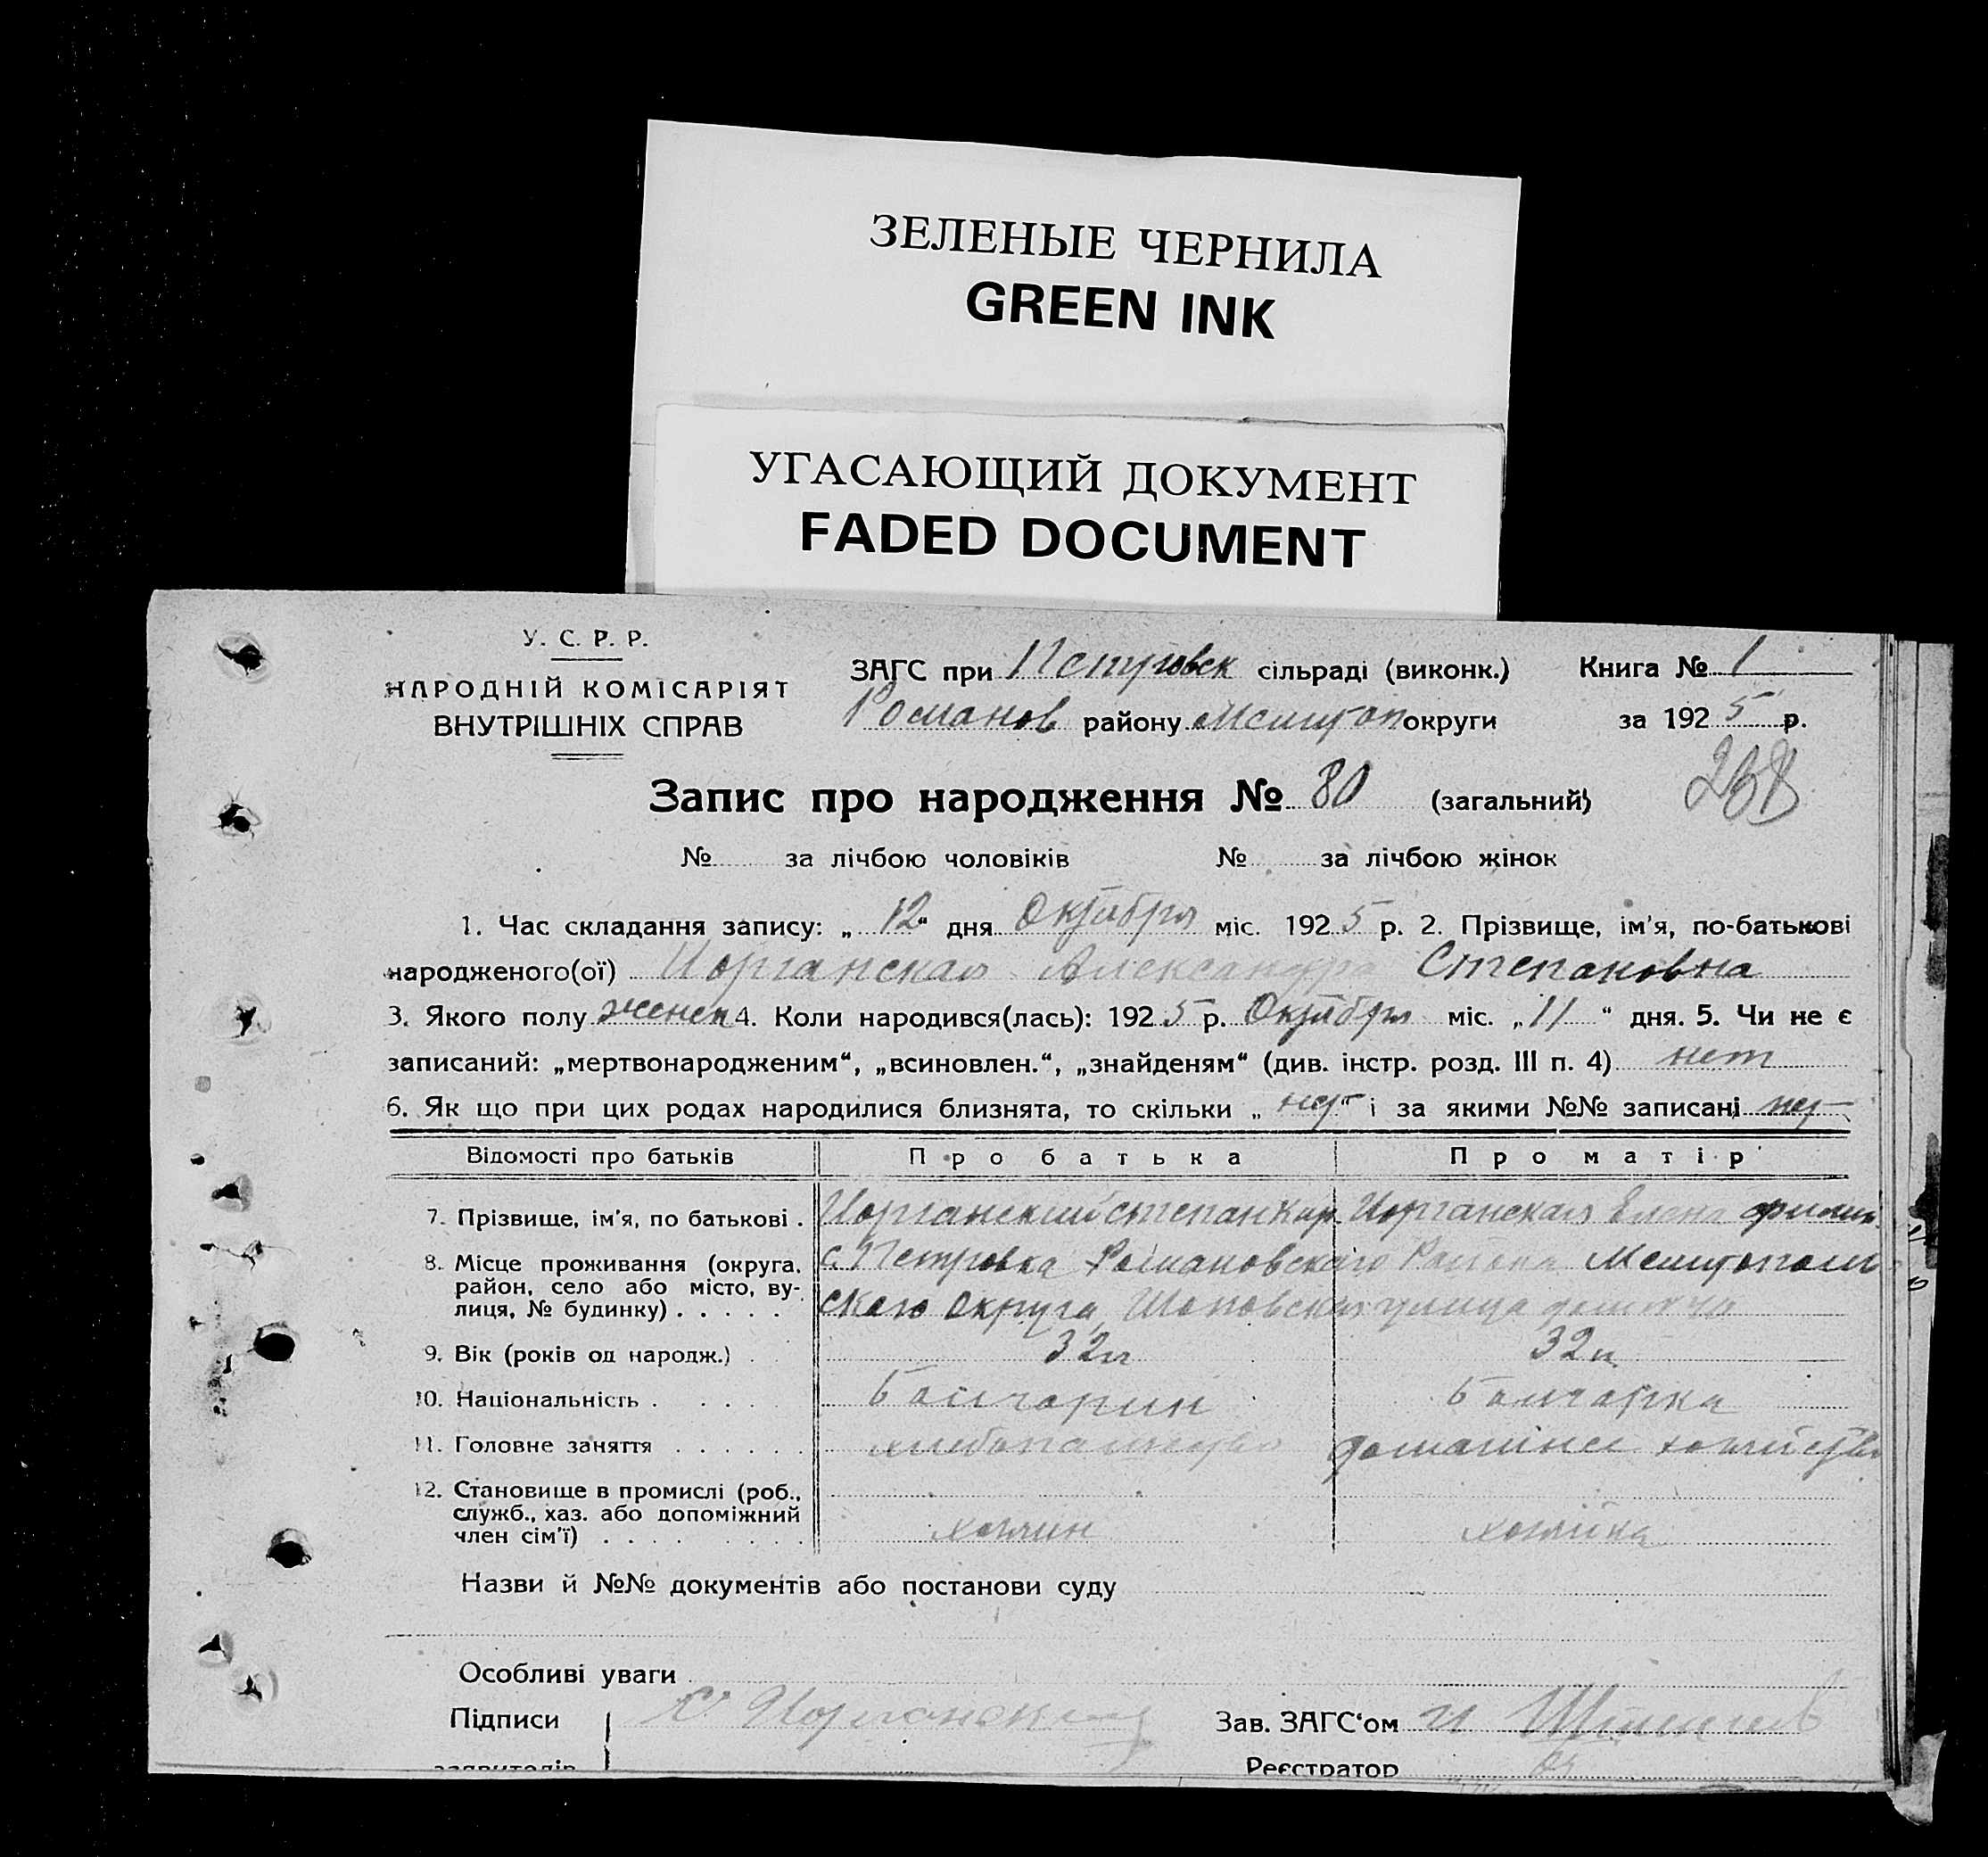 ЗЕЛЕНЫЕ ЧЕРНИЛА
GREEN INK
УГАСАЮЩИЙ ДОКУМЕНТ
FADED DOCUMENT
У. С. Р. Р.
НАРОДНІЙ КОМІСАРІЯТ
ВНУТРІШНІХ СПРАВ
ЗАГС при Петровск сільраді (виконк.) Книга № 1
Романов району Мелитоп округи за 1925 р.
Запис про народження № 80 (загальний)
№ за лічбою чоловіків № за лічбою жінок
1. Час складання запису: „12“ дня Октября міс. 1925 р. 2. Прізвище, ім'я, по-батькові
народженого(ої) Иорганская Александра Степановна
3. Якого полу женск 4. Коли народився(лась): 1925 р. Октября міс. „11“ дня. 5. Чи не є
записаний: „мертвонародженим“, „всиновлен.“, „знайденям“ (див. інстр. розд. III п. 4) нет
6. Як що при цих родах народилися близнята, то скільки „нет“ і за якими №№ записані нет
Відомості про батьків Про батька Про матір
7. Прізвище, ім'я, по батькові . Иорганский Степан Кир. Иорганская Елена Филип
8. Місце проживання (округа, район, село або місто, вулиця, № будинку) . . . . . с. Петровка Романовского Района Мелитопольского округа, улица
9. Вік (років од народж.) . 32 л 32 л
10. Національність . . . . Болгарин Болгарка
11. Головне заняття . . . . . . хлебопашество домашнее хозяйство
12. Становище в промислі (роб., служб., хаз. або допоміжний член сім'ї) . . . . . . . . хозяин хозяйка
Назви й №№ документів або постанови суду
Особливі уваги
Підписи С Иорганский Зав. ЗАГС'ом И
заявителів Реєстратор